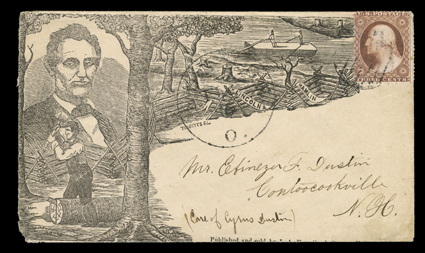 U.S. POSTAGE
THREE CENTS
LINCOLN
HAMLIN
O.
Mr. Ebenezer F. Dustin
Contoocookville
N. H.
(Care of Cyrus Dustin)
Published and sold by